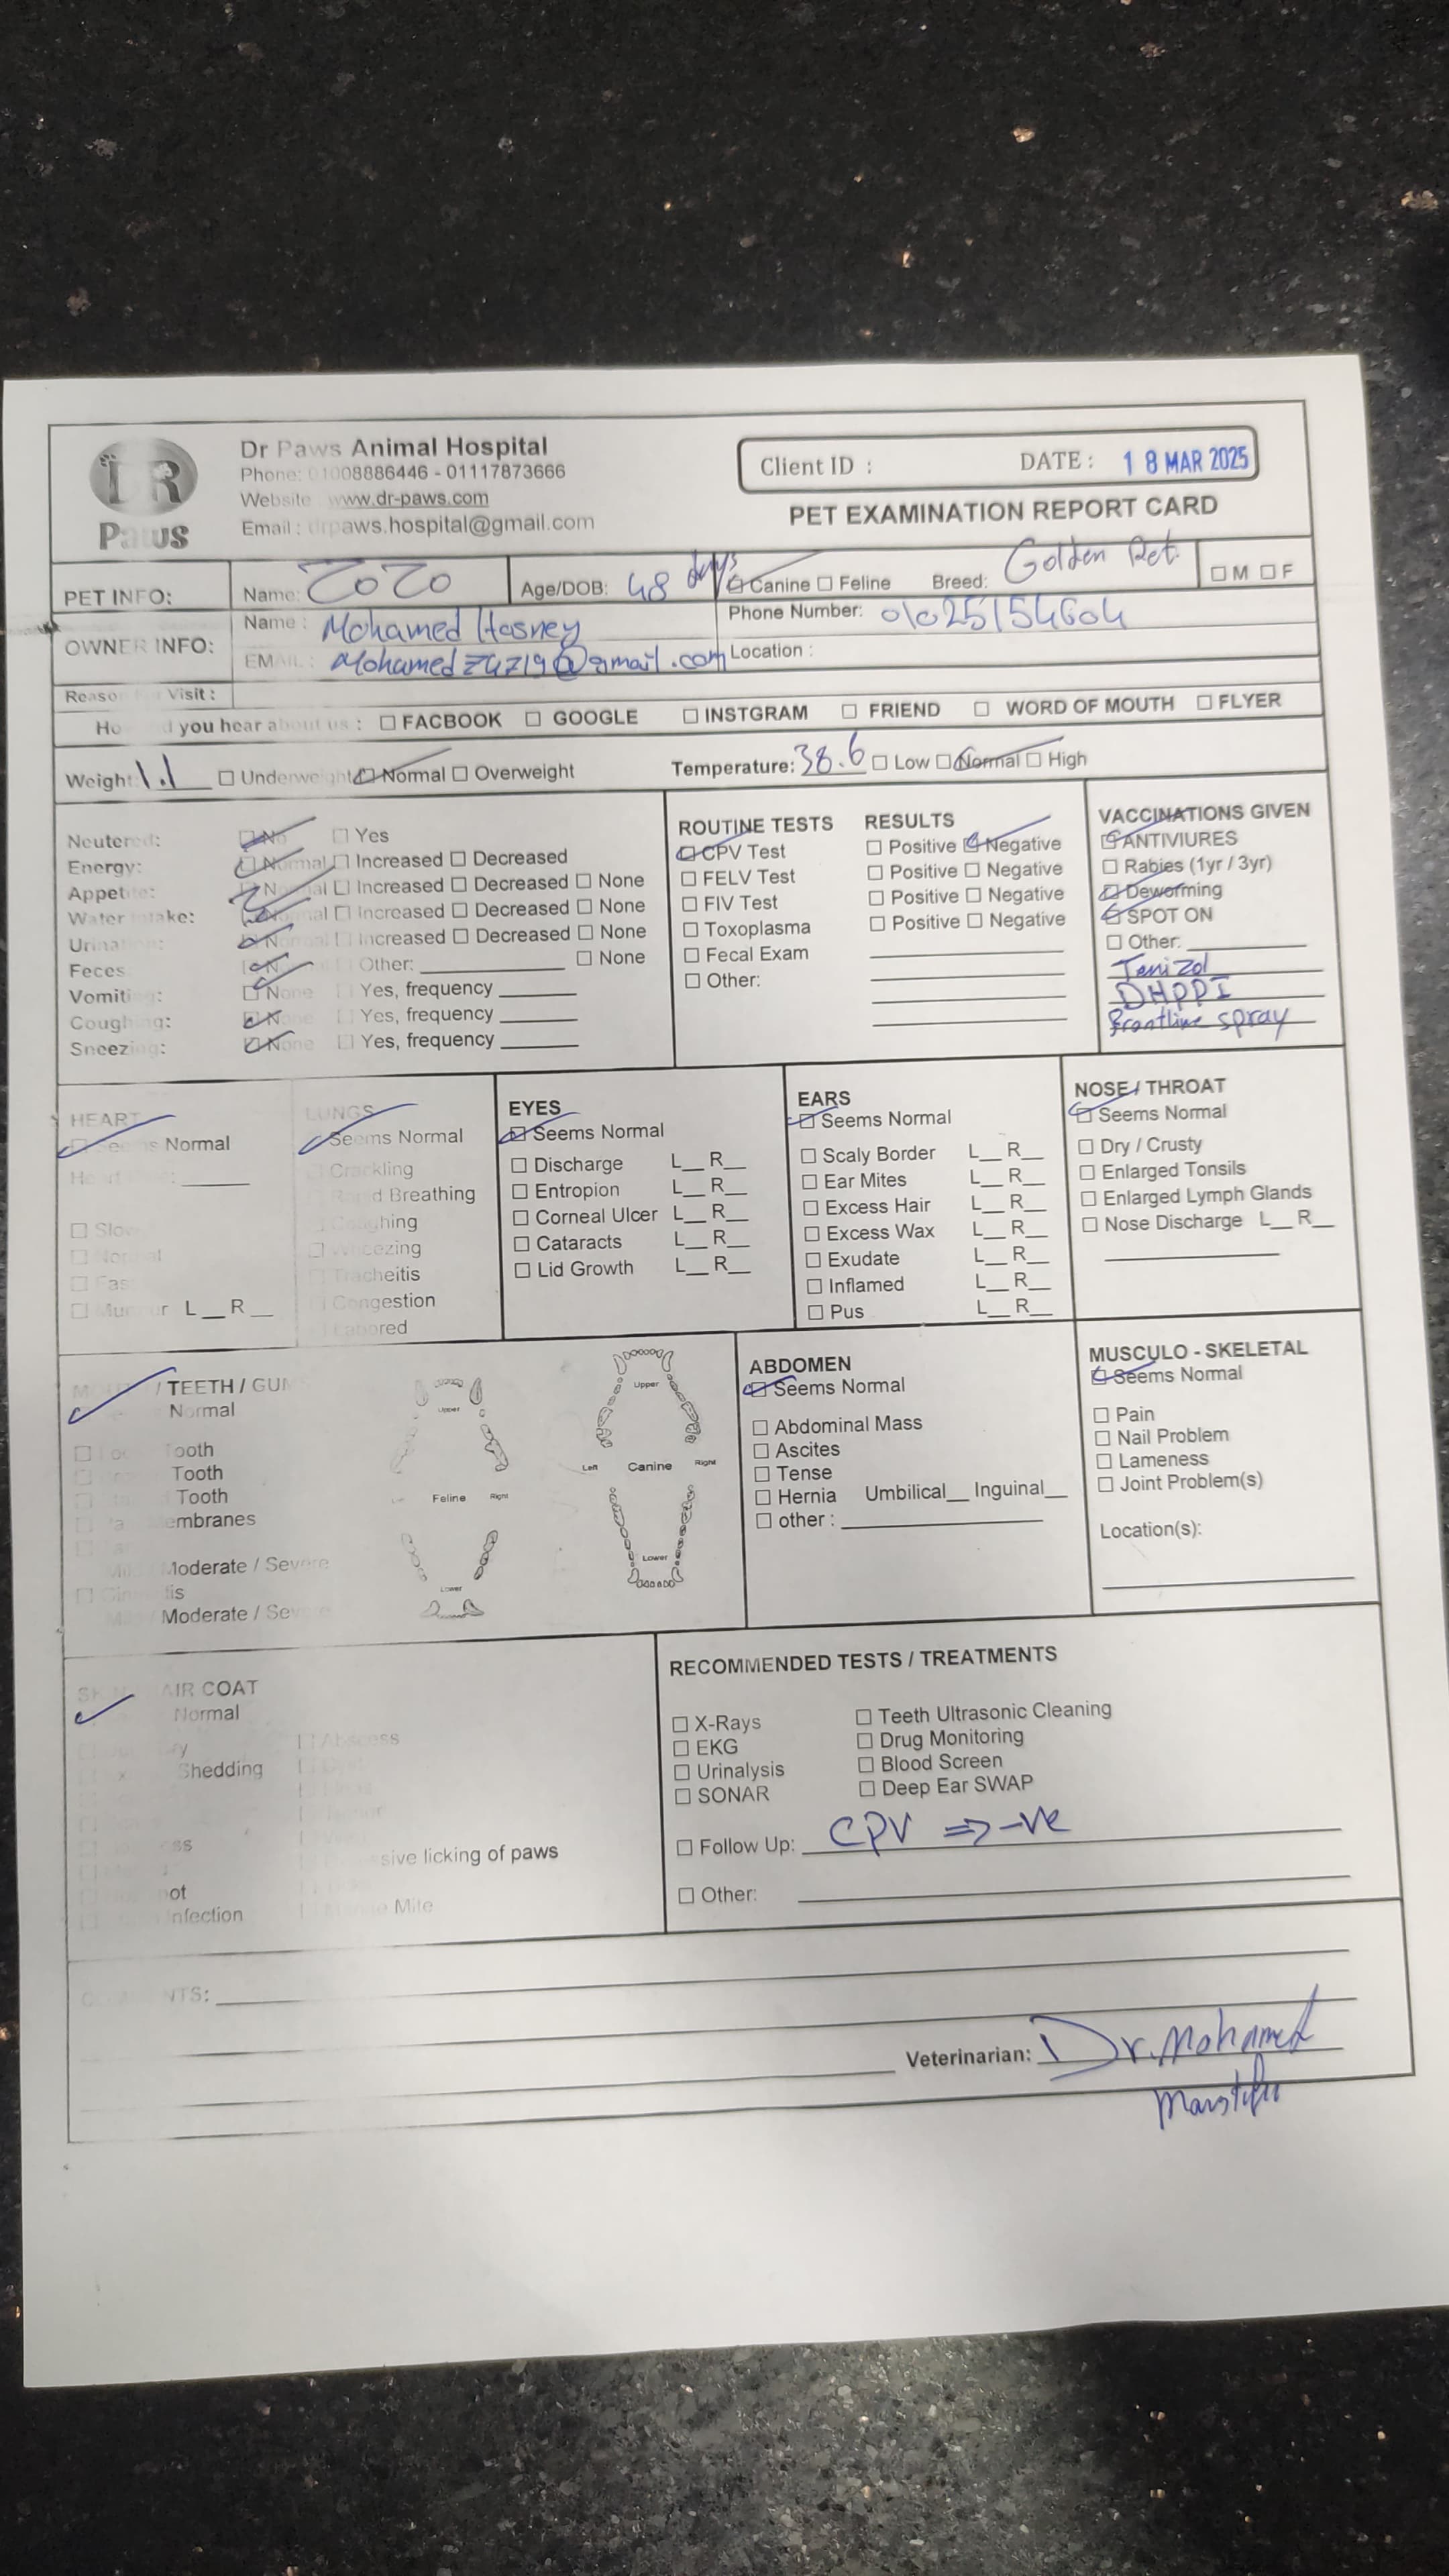 DR
Paws
Dr Paws Animal Hospital
Phone: 01008886446 - 01117873666
Website www.dr-paws.com
Email : drpaws.hospital@gmail.com
Client ID : DATE : 18 MAR 2025
PET EXAMINATION REPORT CARD
PET INFO: Name: ZOZO Age/DOB: 48 days Canine Feline Breed: Golden Ret. M F
OWNER INFO: Name : Mohamed Hosney Phone Number: 01025154604
EMAIL : @gmail.com Location :
Reason Visit :
How you hear about us : FACBOOK GOOGLE INSTGRAM FRIEND WORD OF MOUTH FLYER
Weight: 1.1 Underweight Normal Overweight Temperature: 38.6 Low Normal High
Neutered: No Yes
Energy: Normal Increased Decreased
Appetite: Normal Increased Decreased None
Water Intake: Normal Increased Decreased None
Urination: Normal Increased Decreased None
Feces Other: None
Vomiting: None Yes, frequency
Coughing: None Yes, frequency
Sneezing: None Yes, frequency
ROUTINE TESTS RESULTS
CPV Test Positive Negative
FELV Test Positive Negative
FIV Test Positive Negative
Toxoplasma Positive Negative
Fecal Exam
Other:
VACCINATIONS GIVEN
ANTIVIURES
Rabies (1yr / 3yr)
Deworming
SPOT ON
Other:
Tenizol
DHPPI
Frontline spray
HEART
Seems Normal
Slow
Normal
Fast
Murmur L R
LUNGS
Seems Normal
Crackling
Rapid Breathing
Coughing
Wheezing
Tracheitis
Congestion
Labored
EYES
Seems Normal
Discharge L R
Entropion L R
Corneal Ulcer L R
Cataracts L R
Lid Growth L R
EARS
Seems Normal
Scaly Border L R
Ear Mites L R
Excess Hair L R
Excess Wax L R
Exudate L R
Inflamed L R
Pus L R
NOSE / THROAT
Seems Normal
Dry / Crusty
Enlarged Tonsils
Enlarged Lymph Glands
Nose Discharge L R
/ TEETH / GUM
Normal
Tooth
Tooth
Tooth
Moderate / Severe
Moderate / Severe
Upper
Feline Right
Lower
Upper
Left Canine Right
Lower
ABDOMEN
Seems Normal
Abdominal Mass
Ascites
Tense
Hernia Umbilical Inguinal
other :
MUSCULO - SKELETAL
Seems Normal
Pain
Nail Problem
Lameness
Joint Problem(s)
Location(s):
COAT
Normal
Abscess
Shedding
licking of paws
Infection Mite
RECOMMENDED TESTS / TREATMENTS
X-Rays Teeth Ultrasonic Cleaning
EKG Drug Monitoring
Urinalysis Blood Screen
SONAR Deep Ear SWAP
Follow Up: CPV => -ve
Other:
COMMENTS:
Veterinarian: Dr. Mohamed